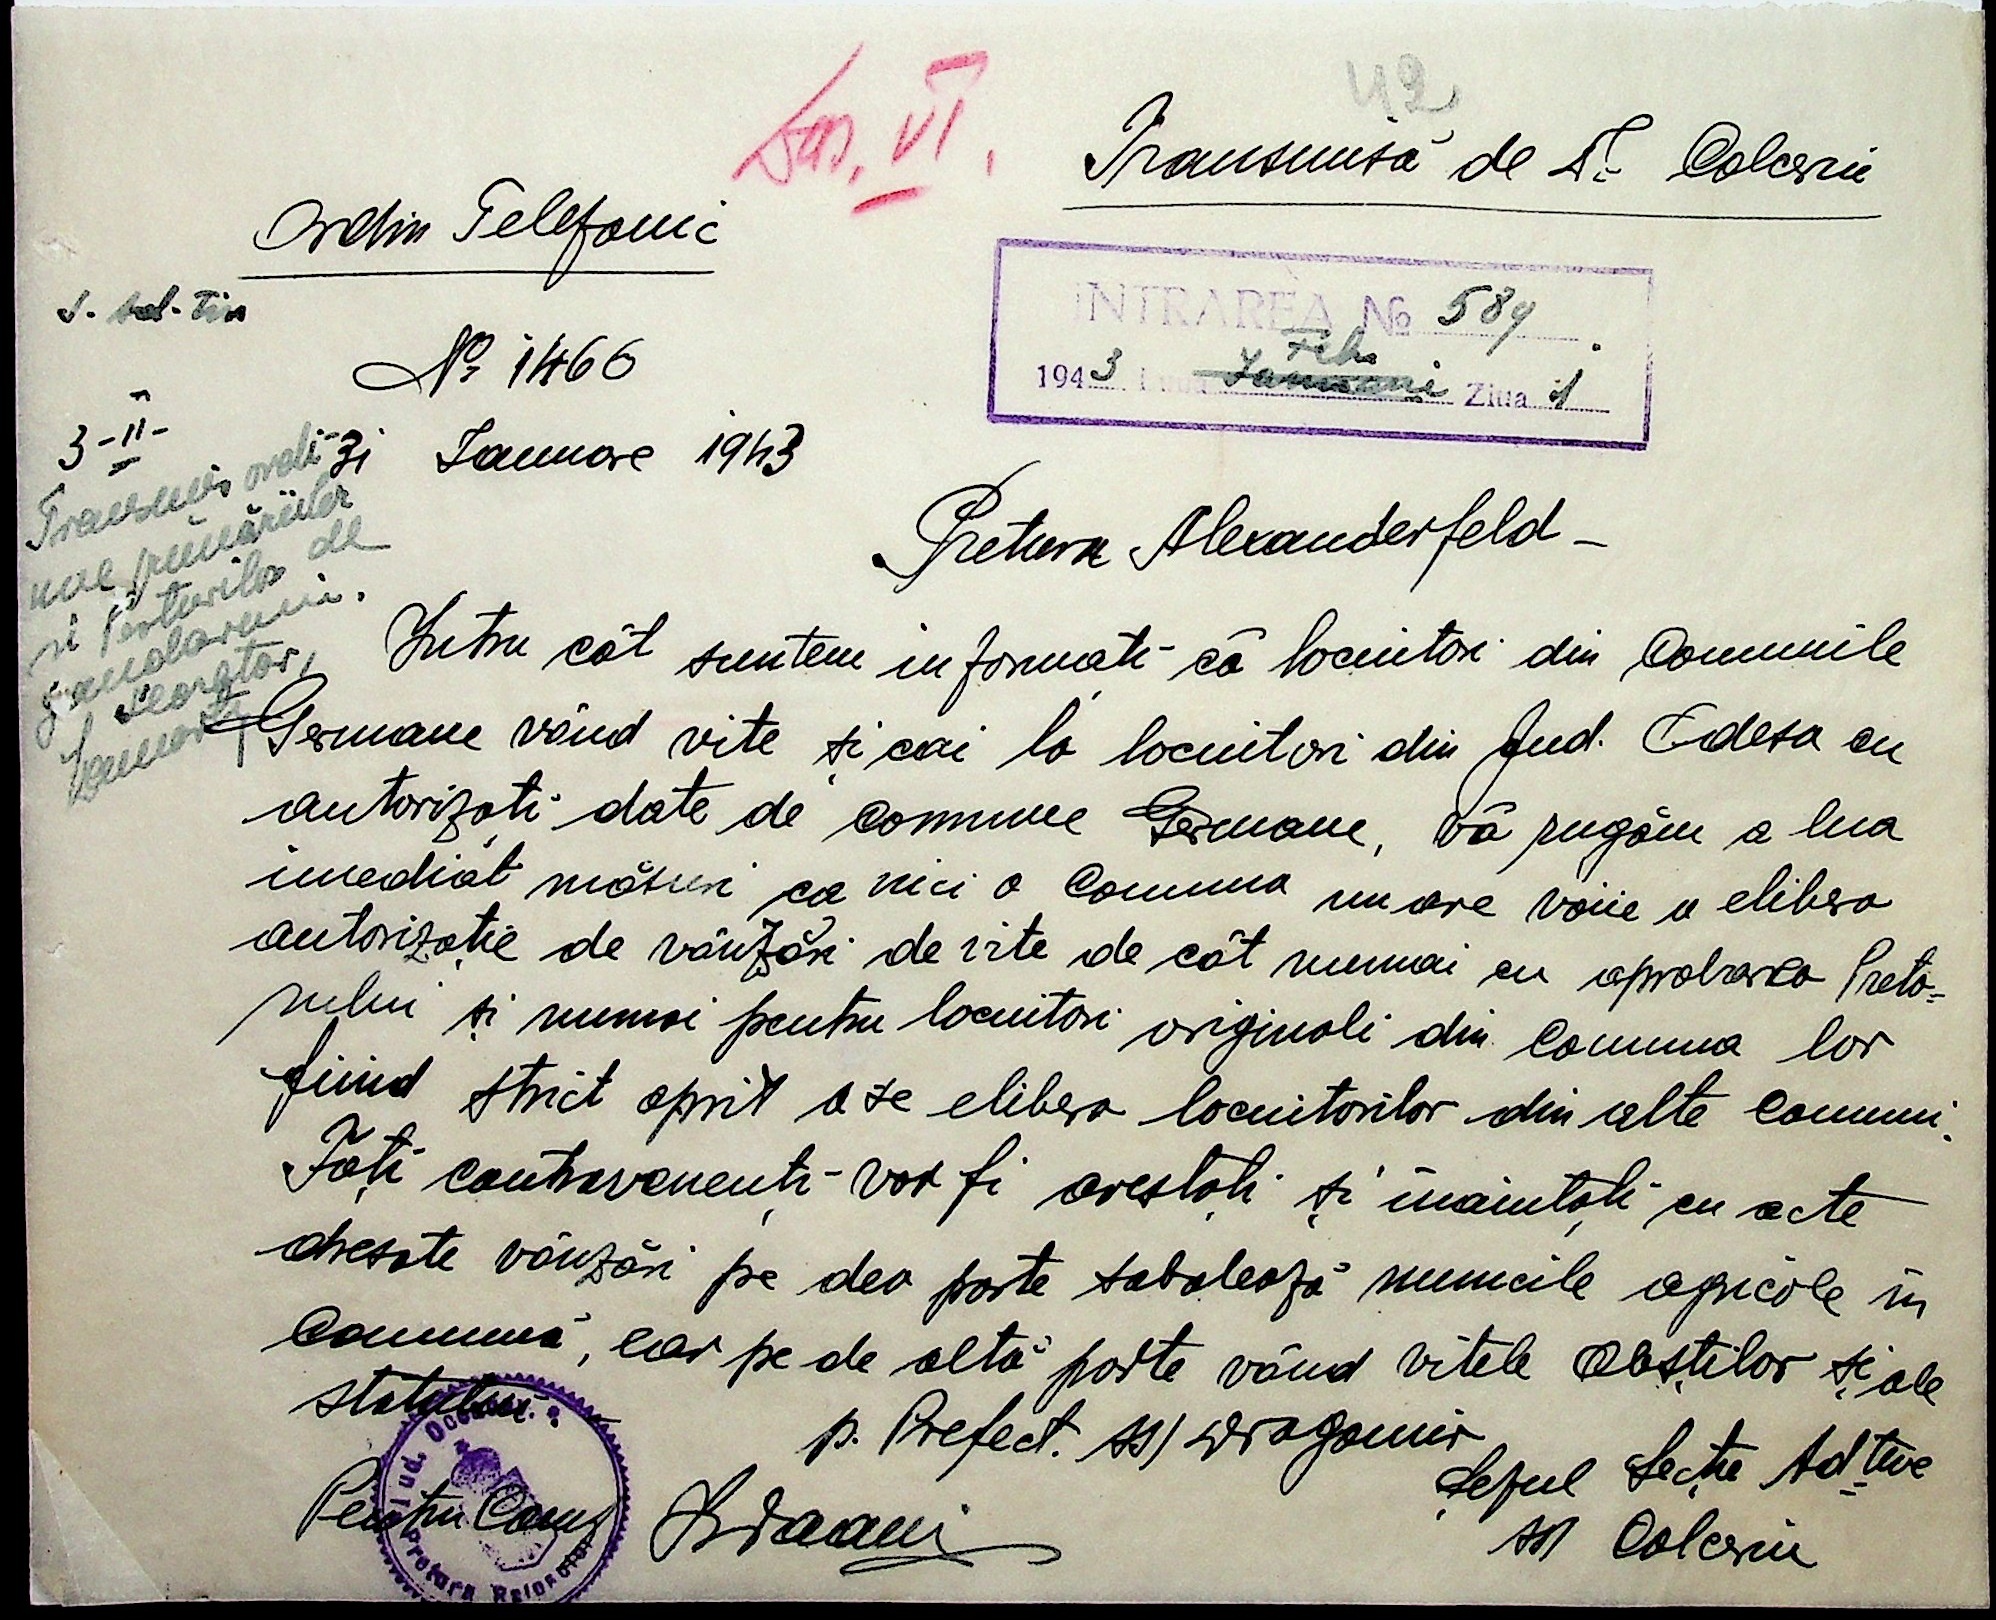 42
Dos. VI.
Transmisă de D. Colceriu
Ordin Telefonic
INTRAREA No 589
1943 Luna Ianuarie Feb. Ziua 1
No 1466
31 Ianuare 1943
3-II-
Transmis ordi-
nul primăriilor
și Posturilor de
jandarmi.
Pretura Alexanderfeld -
Intru cât suntem informați că locuitori din Comunile
Germane vând vite și cai la locuitori din Jud. Odesa cu
autorizați date de comune Germane, vă rugăm a lua
imediat măsuri ca nici o Comuna nu are voie a elibera
autorizație de vânzări de vite de cât numai cu aprobarea Preto=
rului și numai pentru locuitori originali din Comuna lor
fiind strict oprit a se elibera locuitorilor din alte Comuni.
Toți contravenenți vor fi arestați și înaintați cu acte
dresate vânzări pe deo parte sabotează muncile agricole în
Comună, ear pe de altă parte vând vitele Obștilor și ale
statului.
p. Prefect. ss) Dragomir
Șeful Secție Ad=tive
ss) Colceriu
Pentru Conf.
Jud. Oceacov.
Pretura Raionului